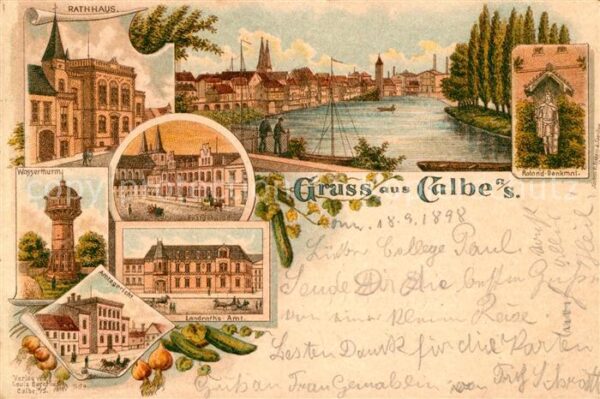 RATHHAUS.
Wasserthurm.
Roland-Denkmal.
Gruss aus Calbe a/S.
Landraths Amt.
Amtsgericht
Verlag von
Louis
Calbe a/S.
18.9.1898
Lieber College Paul
Sende Dir die besten
von einer kleinen Reise
Besten Dank für die Karten
Gruß an Frau Gemahlin von Fritz